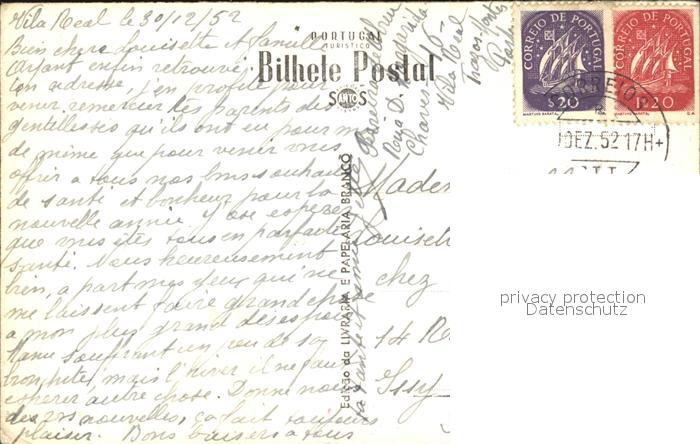 Vila Real le 30/12/52
Bien chère Louisette et famille
Ayant enfin retrouvé
ton adresse, j'en profite pour
venir remercier tes parents des
gentillesses qu'ils ont eu pour m
de même que pour venir vous
offrir a tous nos bons souhaits
de santé et bonheur pour la
nouvelle année y ose esperer
que vous êtes tous en parfaite
santé. Nous heureusement
bien, a part mes yeux qui ne
me laissent faire grand chose
a mon plus grand desespoir
Manu souffrant un peu de sa
bronchite, mais l'hiver il ne faut
esperer autre chose. Donne nous
des vos nouvelles, ça fait toujours
plaisir. Bons baisers a tous
PORTUGAL
TURISTICO
Bilhete Postal
SANTOS
S S
Rua D. Margarida
Chaves 46-
Vila Real
Traz os Montes
Edição da LIVRARIA E PAPELARIA BRANCO
CORREIO DE PORTUGAL
$20
MARTINS BARATA
CORREIO DE PORTUGAL
1$20
MARTINS BARATA
CORREIO
DEZ.52 17H+
Madem
Louisett
chez
14 R
Issy
privacy protection
Datenschutz